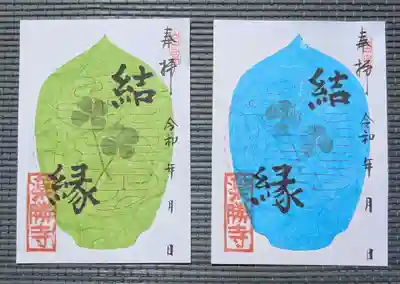 奉拝 令和 年 月 日
結縁
勝寺
奉拝 令和 年 月 日
結縁
勝寺